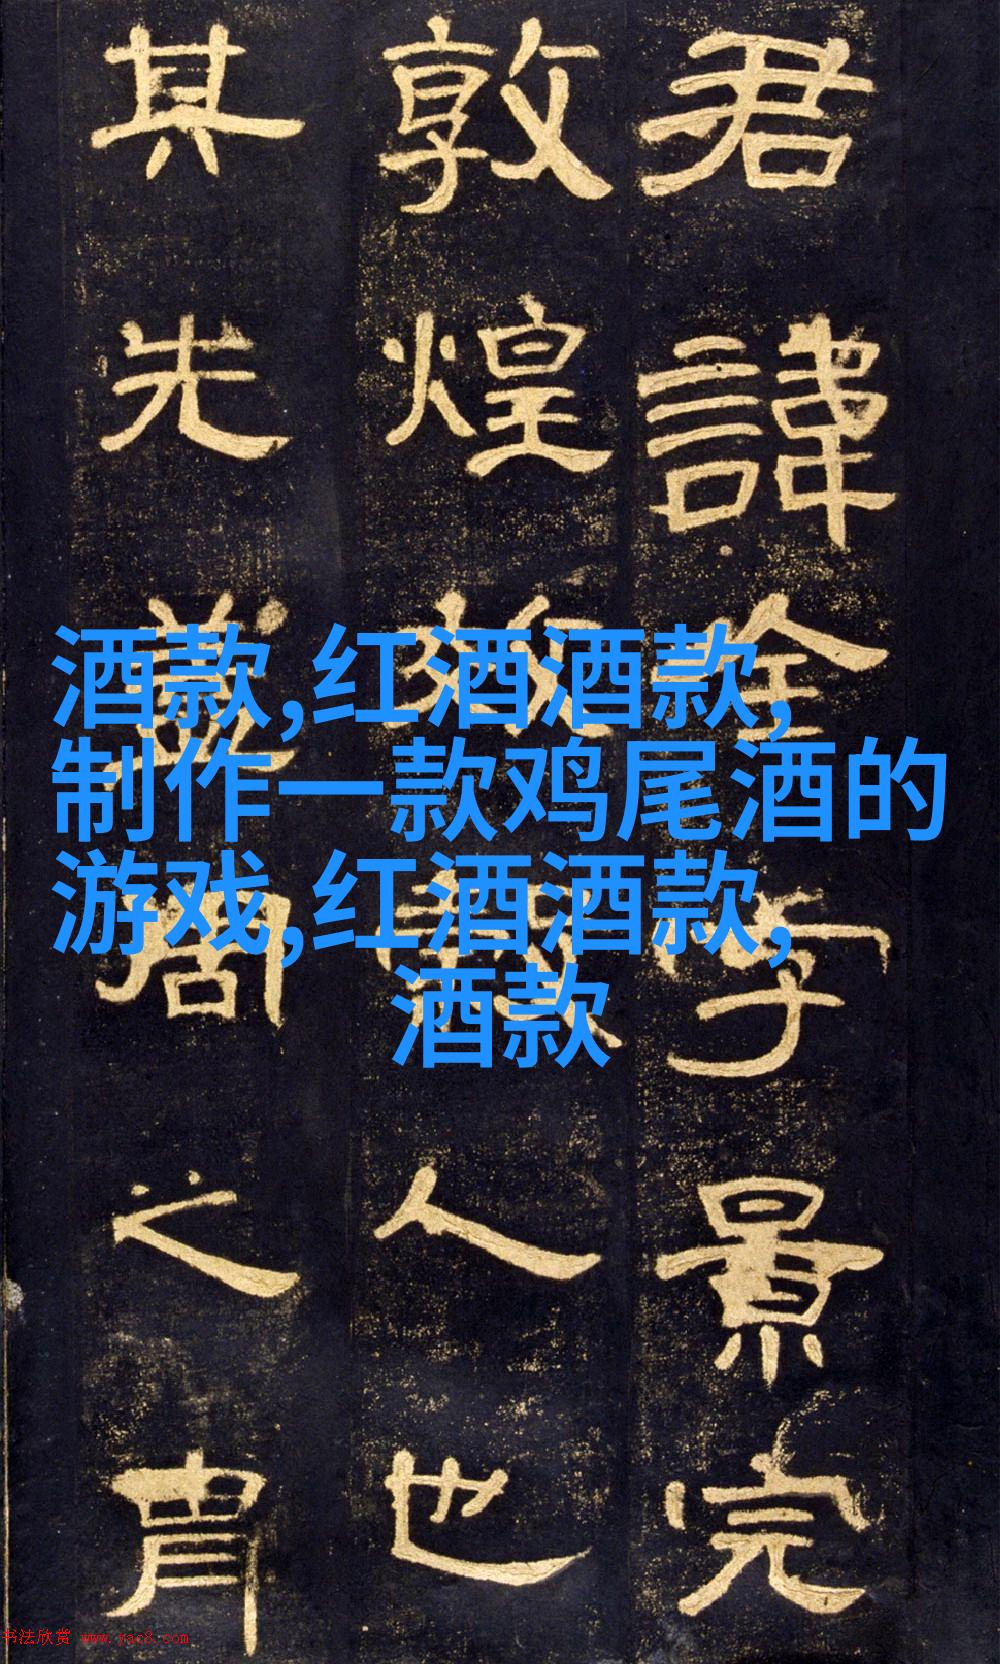 君諱全字景完
敦煌效穀人也
其先蓋周之胄
酒款,红酒酒款,
制作一款鸡尾酒的
游戏,红酒酒款,
酒款
书法欣赏 www.yac8.com